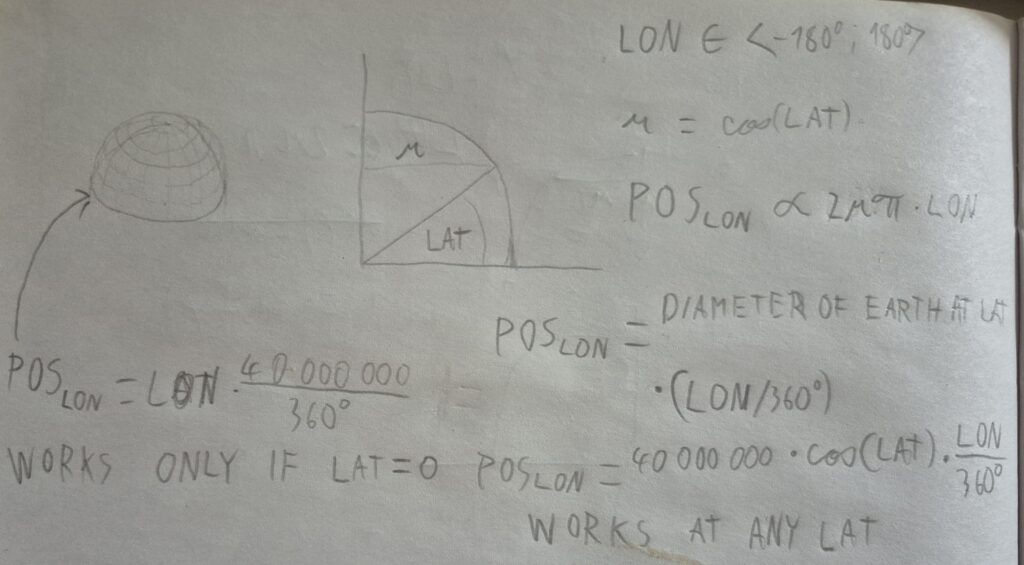 LON ∈ <-180°; 180°>
r = cos(LAT)
r
LAT
POS_LON ∝ 2rπ · LON
POS_LON = DIAMETER OF EARTH AT LAT
· (LON/360°)
POS_LON = LON · 40 000 000 / 360° =
WORKS ONLY IF LAT=0
POS_LON = 40 000 000 · cos(LAT) · LON / 360°
WORKS AT ANY LAT